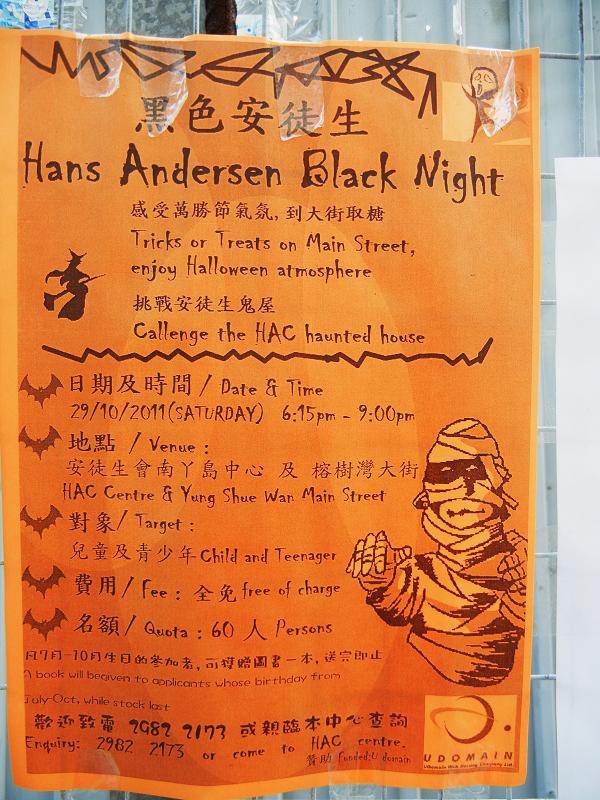 黑色安徒生
Hans Andersen Black Night
感受萬勝節氣氛, 到大街取糖
Tricks or Treats on Main Street,
enjoy Halloween atmosphere
挑戰安徒生鬼屋
Callenge the HAC haunted house
日期及時間 / Date & Time
29/10/2011(SATURDAY) 6:15pm - 9:00pm
地點 / Venue :
安徒生會南丫島中心 及 榕樹灣大街
HAC Centre & Yung Shue Wan Main Street
對象/ Target :
兒童及青少年 Child and Teenager
費用/ Fee : 全免 free of charge
名額/ Quota : 60 人 Persons
凡7月-10月生日的參加者, 可獲贈圖書一本, 送完即止
A book will begiven to applicants whose birthday from
July-Oct, while stock last
歡迎致電 2982 2173 或親臨本中心查詢
Enquiry: 2982 2173 or come to HAC centre.
贊助 Funded:U domain
UDOMAIN
UDomain Web Hosting Company Ltd.